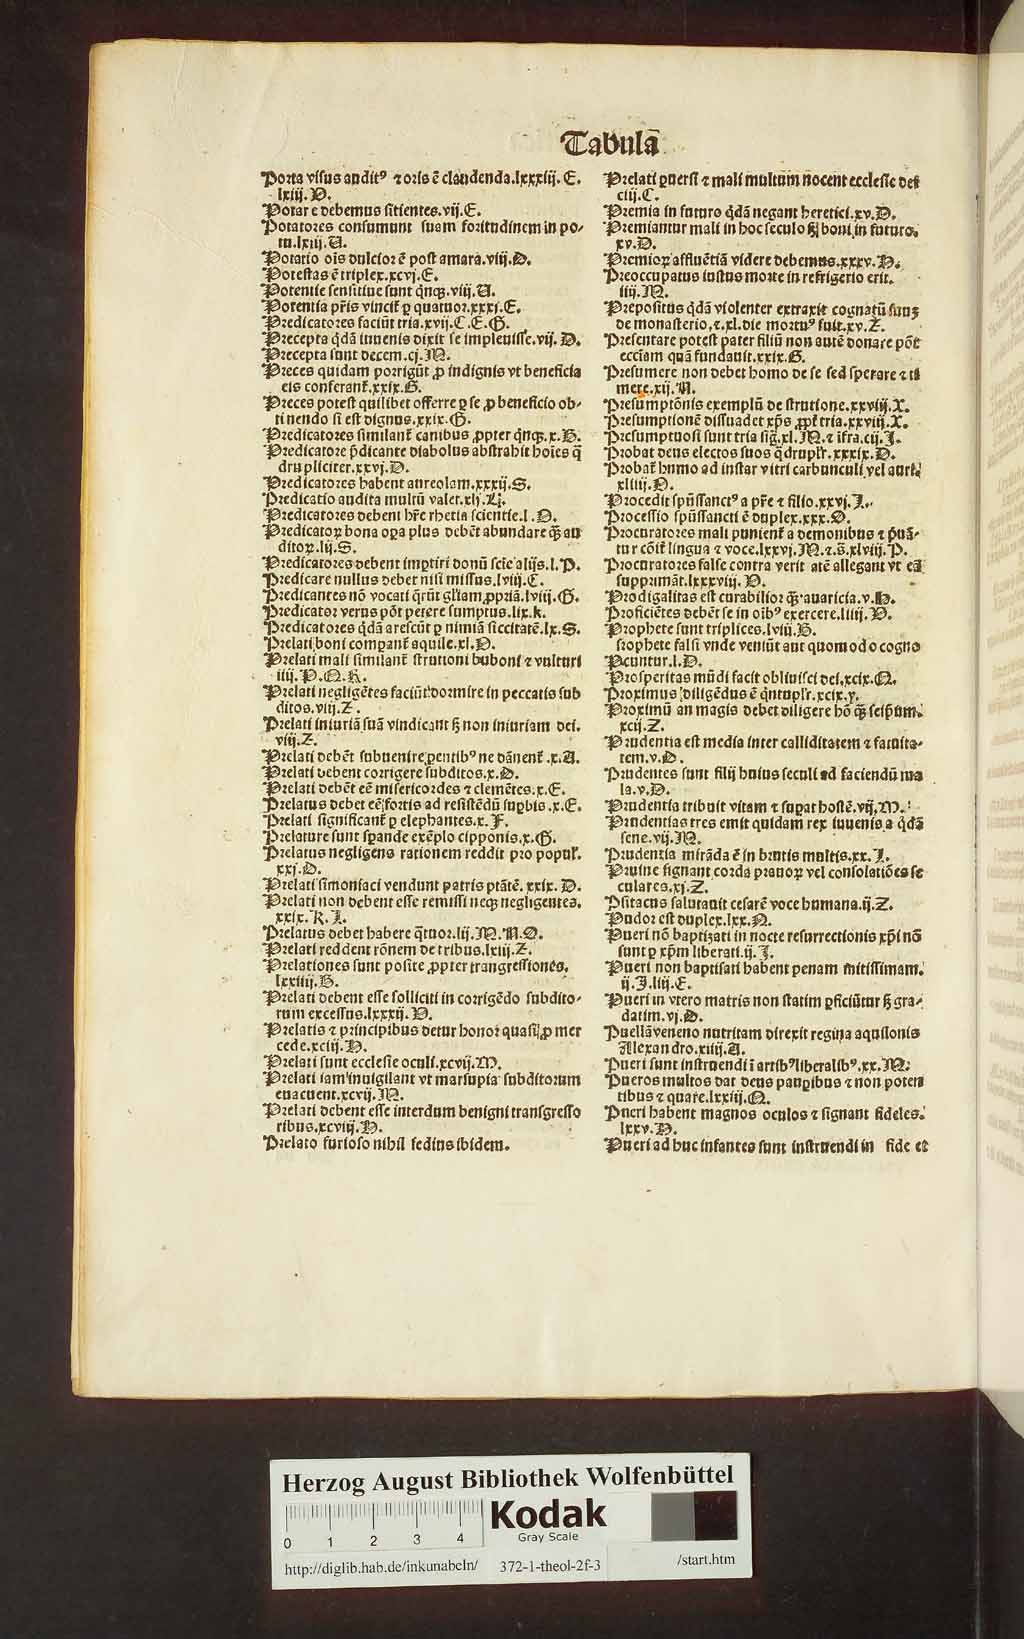 Tabula
Porta visus auditꝰ ⁊ oris ē claudenda.lxxxiij.E.
lxiij.D.
Potare debemus sitientes.vij.E.
Potatores consumunt suam fortitudinem in po-
tu.lxiij.A.
Potatio oīs dulcior ē post amara.viij.D.
Potestas ē triplex.xcvj.E.
Potentie sensitiue sunt qͥnqꝫ.viij.A.
Potentia pr̄is vincit̄ ꝑ quatuor.xxxj.E.
Predicatores faciūt tria.xvij.C.E.G.
Precepta qͥdā iuuenis dixit se impleuisse.vij.D.
Precepta sunt decem.cj.M.
Preces quidam porrigūt ꝓ indignis vt beneficia
eis conferant̄.xxix.G.
Preces potest quilibet offerre ꝑ se ꝓ beneficio ob-
tinendo si est dignus.xxix.G.
Predicatores similant̄ canibus ꝓpter qͥnqꝫ.x.B.
Predicatore p̄dicante diabolus abstrahit hoīes q̄
drupliciter.xxvj.D.
Predicatores habent aureolam.xxxij.S.
Predicatio audita multū valet.xlj.L.
Predicatores debent hr̄e rhetia scientie.l.O.
Predicatoꝝ bona oꝑa plus debēt abundare qꝫ au
ditoꝝ.lij.S.
Predicatores debent imptiri donū scīe alijs.l.P.
Predicare nullus debet nisi missus.lviij.E.
Predicantes nō vocati qͥrūt gl̄iam ꝓpriā.lviij.G.
Predicator verus pōt petere sumptus.lix.k.
Predicatores qͥdā arescūt ꝑ nimiā siccitatē.lx.S.
Prelati boni compant̄ aquile.xl.D.
Prelati mali similant̄ strutioni buboni ⁊ vulturi
iiij.P.Q.R.
Prelati negligētes faciūt dormire in peccatis sub
ditos.viij.Z.
Prelati iniuriā suā vindicant sꝫ non iniuriam dei.
viij.Z.
Prelati debēt subuenire ꝑentibꝰ ne dānent̄.x.A.
Prelati debent corrigere subditos.x.D.
Prelati debēt eē misericordes ⁊ clemētes.x.E.
Prelatus debet eē fortis ad resistēdū suꝑbis.x.E.
Prelati significant̄ ꝑ elephantes.x.F.
Prelature sunt spande exēplo cipponis.x.G.
Prelatus negligens rationem reddit pro popul̄.
xxj.D.
Prelati simoniaci vendunt patris ptātē.xxix.D.
Prelati non debent esse remissi neqꝫ negligentes.
xxix.K.I.
Prelatus debet habere qͣtuor.lij.M.N.O.
Prelati reddent rōnem de tribus.lxiij.Z.
Prelationes sunt posite ꝓpter transgressiones.
lxxiiij.B.
Prelati debent esse solliciti in corrigēdo subdito-
rum excessus.lxxxij.D.
Prelatis ⁊ principibus detur honor quasi ꝓ mer
cede.xciij.D.
Prelati sunt ecclesie oculi.xcvij.M.
Prelati iam inuigilant vt marsupia subditorum
euacuent.xcvij.M.
Prelati debent esse interdum benigni transgresso
ribus.xcviij.D.
Prelato furioso nihil fedius ibidem.
Prelati ꝑuersi ⁊ mali multum nocent ecclesie dei
ciij.C.
Premia in futuro qͥdā negant heretici.xv.D.
Premiantur mali in hoc seculo sꝫ boni in futuro.
xv.D.
Premioꝝ affluentiā videre debemus.xxxv.H.
Preoccupatus iustus morte in refrigerio erit.
iiij.M.
Prepositus qͥdā violenter extraxit cognatū suuꝫ
de monasterio,⁊.xl.die mortuꝰ fuit.xv.Z.
Presentare potest pater filiū non autē donare pōt
ecclam quā fundauit.xxix.G.
Presumere non debet homo de se sed sperare ⁊ ti
mere.xij.N.
Presumptōnis exemplū de strutione.xxviij.X.
Presumptionē dissuadet xp̄s ꝓpt̄ tria.xxviij.X.
Presumptuosi sunt tria siḡ.xl.M.⁊ īfra.cij.I.
Probat deus electos suos qͣdruplr̄.xxxix.D.
Probat̄ humo ad instar vitri carbunculi vel auri.
xliiij.D.
Procedit spūssanctꝰ a pr̄e ⁊ filio.xxvj.I.
Processio spūssancti ē duplex.xxx.O.
Procuratores mali punient̄ a demonibus ⁊ p̄uā-
tur cōit̄ lingua ⁊ voce.lxxvj.M.⁊.s̄.xlviij.P.
Procuratores false contra veritatē allegant vt eā
supprimāt.lxxxviij.D.
Prodigalitas est curabilior qꝫ auaricia.v.H.
Proficiētes debēt se in oībꝰ exercere.liiij.D.
Prophete sunt triplices.lviij.B.
Prophete falsi vnde veniūt aut quomodo cogno
scuntur.l.D.
Prosperitas mūdi facit obliuisci dei.xcix.Q.
Proximus diligēdus ē qͥntuplr̄.xcix.y.
Proximū an magis debet diligere hō qꝫ seip̄um.
xcij.Z.
Prudentia est media inter calliditatem ⁊ fatuita-
tem.v.D.
Prudentes sunt filij huius seculi ad faciendū ma
la.v.D.
Prudentia tribuit vitam ⁊ suꝑat hostē.vij.M.
Prudentias tres emit quidam rex iuuenis a qͥdā
sene.vij.M.
Prudentia mirāda ē in brutis multis.xx.I.
Pruine signant corda prauoꝝ vel consolatiōes se
culares.xj.Z.
Psitacus salutauit cesarē voce humana.ij.Z.
Pudor est duplex.lxx.N.
Pueri nō baptizati in nocte resurrectionis xp̄i nō
sunt ꝑ xp̄m liberati.ij.I.
Pueri non baptisati habent penam mitissimam.
ij.I.liij.E.
Pueri in vtero matris non statim ꝑficiūtur sꝫ gra-
datim.vj.D.
Puellā veneno nutritam direxit regina aquilonis
Alexandro.xiiij.A.
Pueri sunt instruendi ī artibꝰ liberalibꝰ.xx.M.
Pueros multos dat deus pauꝑibus ⁊ non poten
tibus ⁊ quare.lxxiij.Q.
Pueri habent magnos oculos ⁊ signant fideles.
lxxv.D.
Pueri ad huc infantes sunt instruendi in fide et
Herzog August Bibliothek Wolfenbüttel
Kodak
Gray Scale
0 1 2 3 4
http://diglib.hab.de/inkunabeln/ 372-1-theol-2f-3 /start.htm